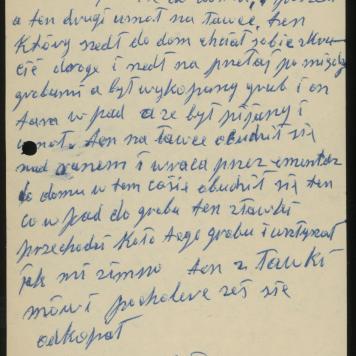 a ten drugi usnoł na ławce, ten
który szedł do dom chciał sobie skru
cić droge i szedł na przełaj pomiędzy
grobami a był wykopany grub i on
tam wpad a że był pijany i
usnoł. ten na ławce obudził się
nad ranem i wraca przez cmentarz
do domu w tem casie obudził się ten
co wpad do grobu ten z ławki
przechodzi koło tego grobu i usłyszał
jak mi zimno ten z ławki
mówi pocholere żeś się
odkopał